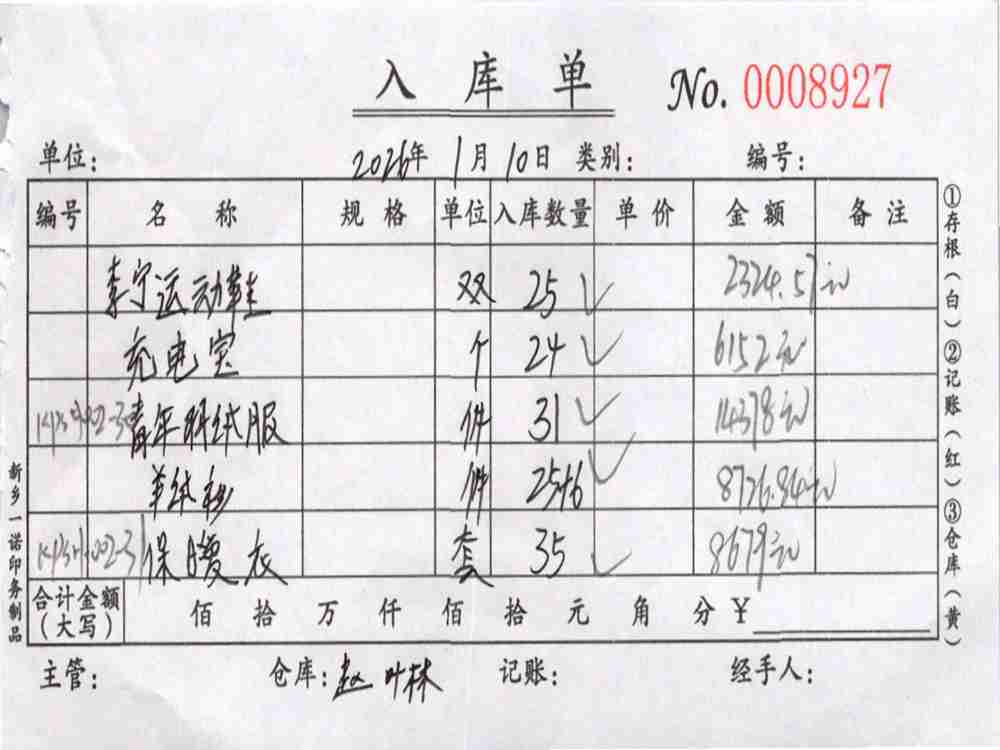 入库单 No. 0008927
单位: 2026年 1月 10日 类别: 编号:
编号 名称 规格 单位 入库数量 单价 金额 备注
李宁运动鞋 双 25 2324.57元
充电宝 个 24 6152元
青年羽绒服 件 31 14378元
羊绒衫 件 25+16 8726.84元
保暖衣 套 35 8679元
合计金额(大写) 佰 拾 万 仟 佰 拾 元 角 分 ¥
主管: 仓库: 赵叶林 记账: 经手人:
①存根(白)②记账(红)③仓库(黄)
新乡一诺印务制品